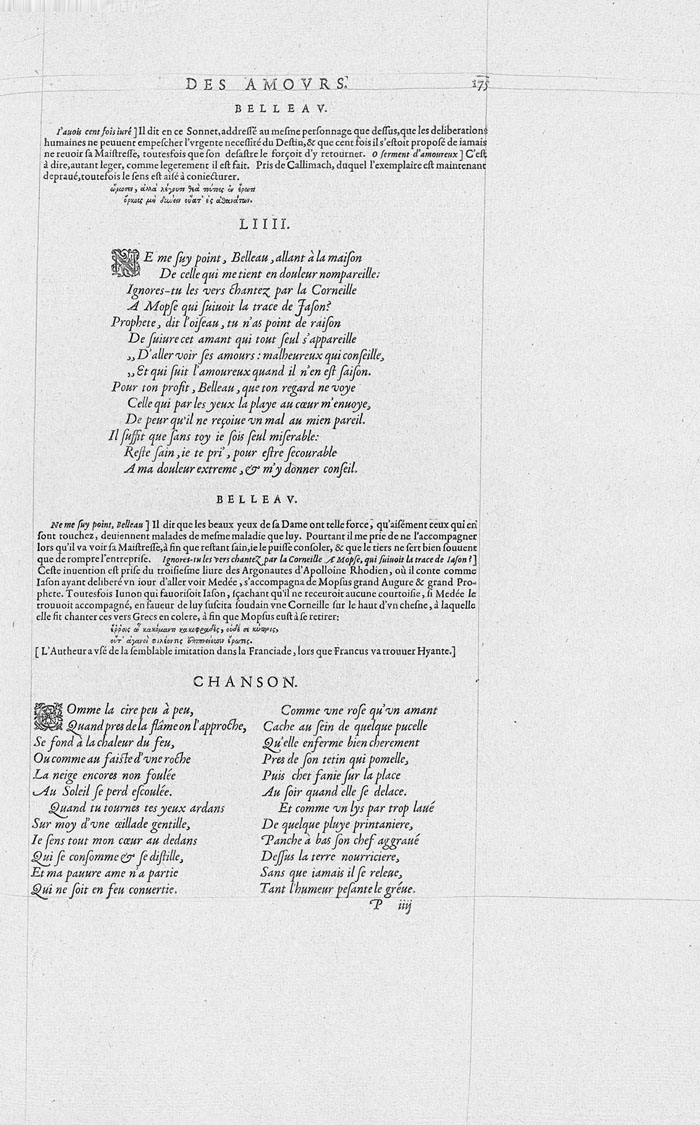 DES AMOVRS.
175
BELLEAV.
I'auois cent fois iuré ] Il dit en ce Sonnet, addressé au mesme personnage que dessus, que les deliberations
humaines ne peuuent empescher l'vrgente necessité du Destin, & que cent fois il s'estoit proposé de iamais
ne reuoir sa Maistresse, toutesfois que son desastre le forçoit d'y retourner. O serment d'amoureux ] C'est
à dire, autant leger, comme legerement il est fait. Pris de Callimach, duquel l'exemplaire est maintenant
depraué, toutefois le sens est aisé à coniecturer.
LIIII.
NE me suy point, Belleau, allant à la maison
De celle qui me tient en douleur nompareille:
Ignores-tu les vers chantez par la Corneille
A Mopse qui suiuoit la trace de Jason?
Prophete, dit l'oiseau, tu n'as point de raison
De suiure cet amant qui tout seul s'appareille
,, D'aller voir ses amours : malheureux qui conseille,
,, Et qui suit l'amoureux quand il n'en est saison.
Pour ton profit, Belleau, que ton regard ne voye
Celle qui par les yeux la playe au cœur m'enuoye,
De peur qu'il ne reçoiue vn mal au mien pareil.
Il suffit que sans toy ie sois seul miserable:
Reste sain, ie te pri', pour estre secourable
A ma douleur extreme, & m'y donner conseil.
BELLEAV.
Ne me suy point, Belleau ] Il dit que les beaux yeux de sa Dame ont telle force, qu'aisément ceux qui en
sont touchez, deuiennent malades de mesme maladie que luy. Pourtant il me prie de ne l'accompagner
lors qu'il va voir sa Maistresse, à fin que restant sain, ie le puisse consoler, & que le tiers ne sert bien souuent
que de rompre l'entreprise. Ignores-tu les vers chantez par la Corneille A Mopse, qui suiuoit la trace de Iason ? ]
Ceste inuention est prise du troisiesme liure des Argonautes d'Apolloine Rhodien, où il conte comme
Iason ayant deliberé vn iour d'aller voir Medée, s'accompagna de Mopsus grand Augure & grand Pro-
phete. Toutesfois Iunon qui fauorisoit Iason, sçachant qu'il ne receuroit aucune courtoisie, si Medée le
trouuoit accompagné, en faueur de luy suscita soudain vne Corneille sur le haut d'vn chesne, à laquelle
elle fit chanter ces vers Grecs en colere, à fin que Mopsus eust à se retirer:
[ L'Autheur a vsé de la semblable imitation dans la Franciade, lors que Francus va trouuer Hyante.]
CHANSON.
COmme la cire peu à peu,
Quand pres de la flâme on l'approche,
Se fond à la chaleur du feu,
Ou comme au faiste d'vne roche
La neige encores non foulée
Au Soleil se perd escoulée.
Quand tu tournes tes yeux ardans
Sur moy d'vne œillade gentille,
Ie sens tout mon cœur au dedans
Qui se consomme & se distille,
Et ma pauure ame n'a partie
Qui ne soit en feu conuertie.
Comme vne rose qu'vn amant
Cache au sein de quelque pucelle
Qu'elle enferme bien cherement
Pres de son tetin qui pomelle,
Puis chet fanie sur la place
Au soir quand elle se delace.
Et comme vn lys par trop laué
De quelque pluye printaniere,
Panche à bas son chef aggraué
Dessus la terre nourriciere,
Sans que iamais il se releue,
Tant l'humeur pesante le gréue.
P iiij